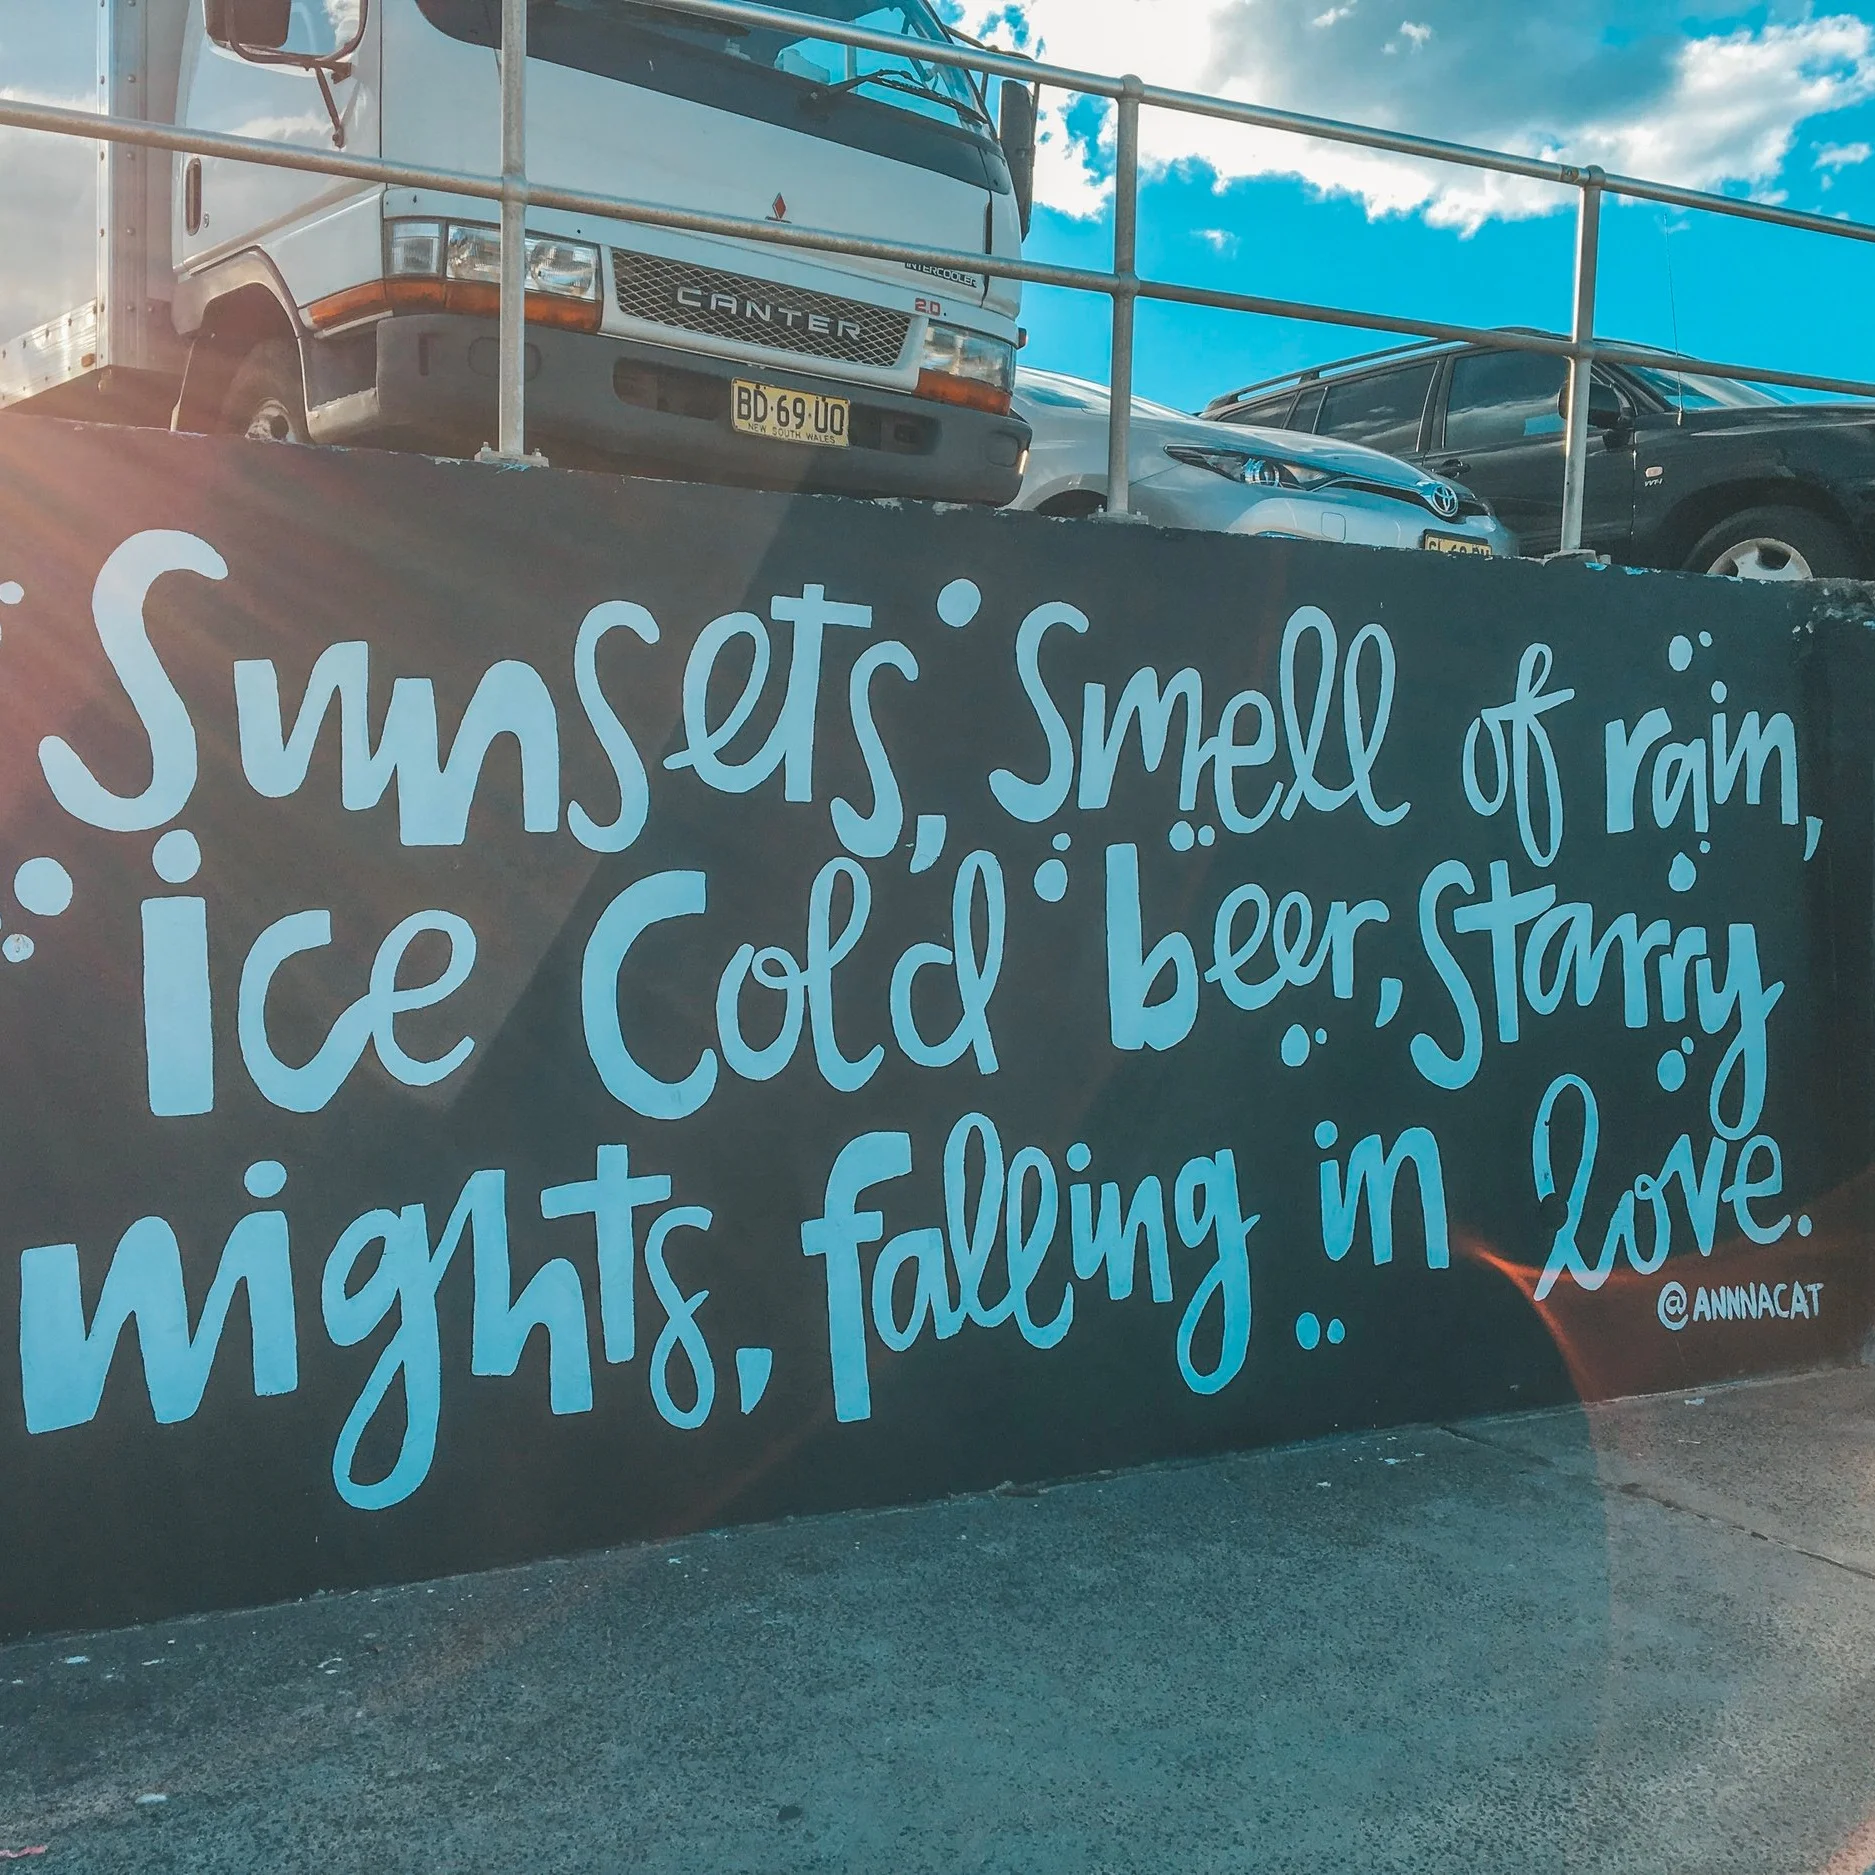 INTERCOOLER
CANTER 2.0
BD·69·UO
NEW SOUTH WALES
Sunsets, Smell of rain,
ice cold beer, Starry
nights, falling in love.
@ANNNACAT